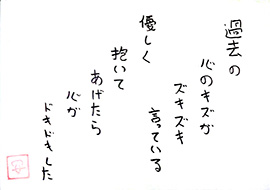 過去の
心のキズが
ズキズキ
言っている
優しく
抱いて
あげたら
心が
ドキドキした